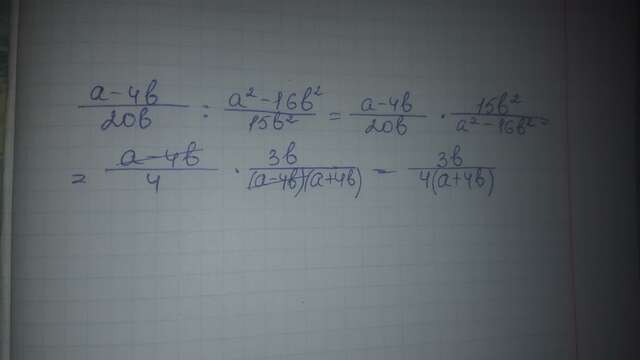 (a-4b)/(20b) : (a²-16b²)/(15b²) = (a-4b)/(20b) · (15b²)/(a²-16b²) =
= (a-4b)/4 · (3b)/((a-4b)(a+4b)) = (3b)/(4(a+4b))